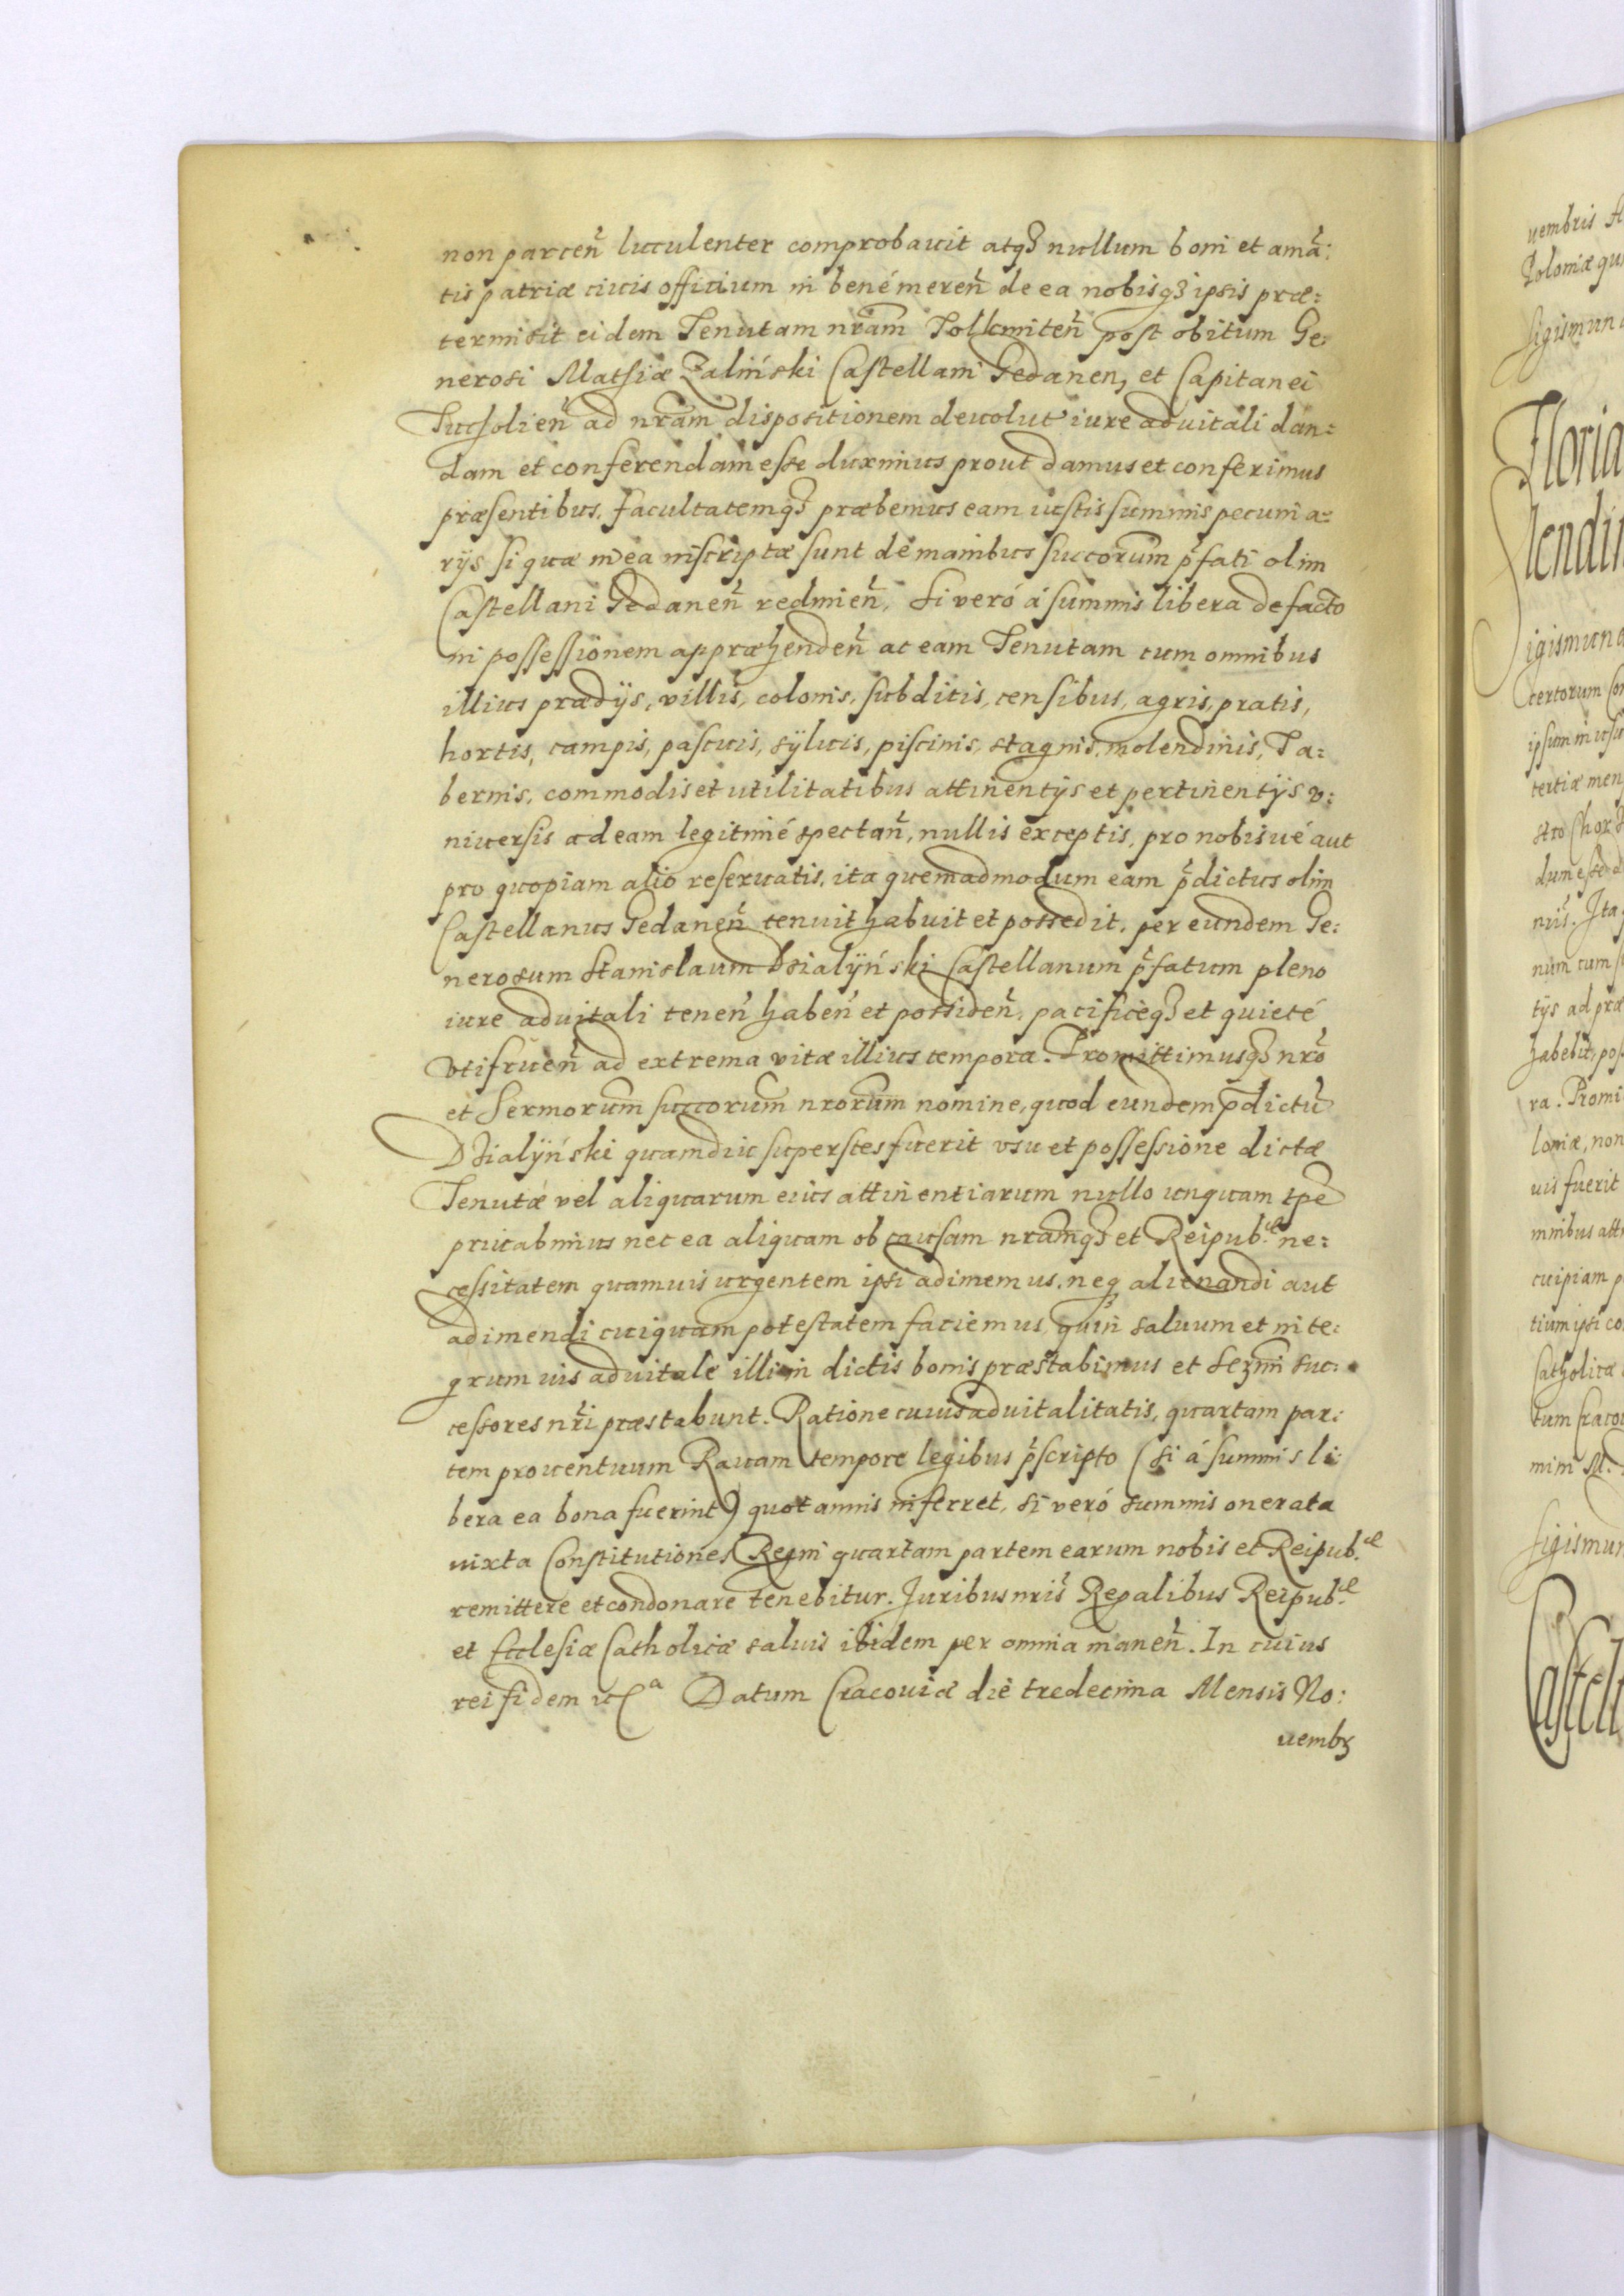 non parceñ luculenter comprobauit atq₃ nullum boni et amã:
tis patriæ ciuis officium in bené mereñ de ea nobisq₃ ipsis præ:
termisit eidem Tenutam nrãm Tolkmiteñ post obitum Ge:
nerosi Mathiæ Zalinski Castellani Gedanen, et Capitanei
Tucholieñ ad nrãm dispositionem deuolut iure aduitali dan:
dam et conferendam esse duximus prout damus et conferimus
præsentibus. Facultatemq₃ præbemus eam iustis summis pecunia:
rijs si quæ in ea inscriptæ sunt dé manibus succorum p̃fati olim
Castellani Gedaneñ redmieñ, Si veró á summis libera de facto
in possessionem appræhendeñ ac eam Tenutam cum omnibus
illius prædijs, villis, colonis, subditis, censibus, agris, pratis,
hortis, campis, pascuis, sÿluis, piscinis, stagnis, molendinis, Ta:
bernis, commodis et utilitatibus attinentijs et pertinentijs v:
niuersis ad eam legitimé spectañ, nullis exceptis, pro nobisué aut
pro quopiam alio reseruatis, ita quemadmodum eam p̃dictus olim
Castellanus Gedaneñ tenuit habuit et possedit, per eundem Ge:
nerosum Stanislaum Dzialÿnski Castellanum p̃fatum pleno
iure aduitali teneñ habeñ et possideñ, pacificéq₃ et quieté
vtifrueñ ad extrema vitæ illius tempora. Promittimusq₃ nrõ
et Sermorum succorum nrorum nomine, quod eundem p̃dictũ
Dzialÿnski quamdiu superstes fuerit vsu et possessione dictæ
Tenutæ vel aliquarum eius attinentiarum nullo unquam tpẽ
priuabimus nec ea aliquam ob causam nramq₃ et Reipub.ᶜᵉ ne:
cessitatem quamuis urgentem ipsi adimemus, neq₃ alienandi aut
adimendi cuiquam potestatem faciemus, quin saluum et inte:
grum ius aduitale illi in dictis bonis præstabimus et Sermi suc:
cessores nr̃i præstabunt. Ratione cuius aduitalitatis, quartam par:
tem prouentuum Rauam tempore legibus p̃scripto (si á summis li:
bera ea bona fuerint) quotannis inferret, si veró summis onerata
iuxta Constitutiones Regni quartam partem earum nobis et Reipub.ᶜᵉ
remittere et condonare tenebitur. Juribus nris̃ Regalibus Reipub.ᶜᵉ
et Ecclesiæ Catholicæ saluis ibidem per omnia maneñ. In cuius
rei fidem etcᵃ Datum Cracouiæ die tredecima Mensis No:
uembr
uembris
Poloniæ
Sigismun
Floria
lendi
igismun
certorum
tertiæ men
Ita
num cum
tijs ad præ
habebit, pos
ra. Promi
loniæ, non
uis fuerit
cuipiam
tium ipsi co
Catholicæ
tum Craco
Sigismun
Castell